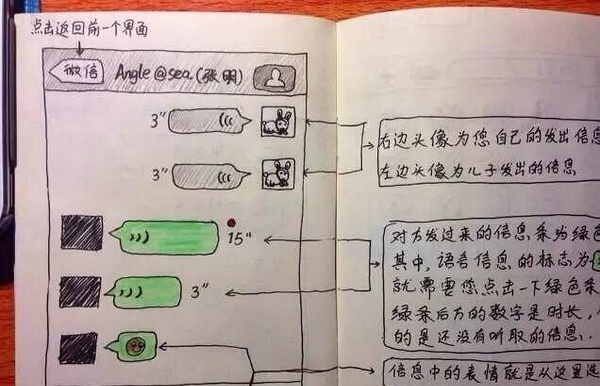 点击返回前一个界面
微信
Angle@sea(张明)
3"
3"
15"
3"
右边头像为您自己的发出信息
左边头像为儿子发出的信息
对方发过来的信息条为绿色
其中,语音信息的标志为
就需要您点击一下绿色条
绿条后方的数字是时长,
的是还没有听取的信息.
信息中的表情就是从这里选